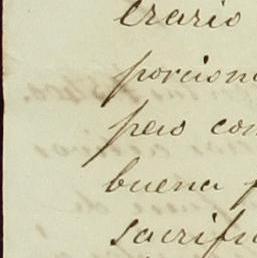 erario
porcion
pero con
buena p
sacrifi